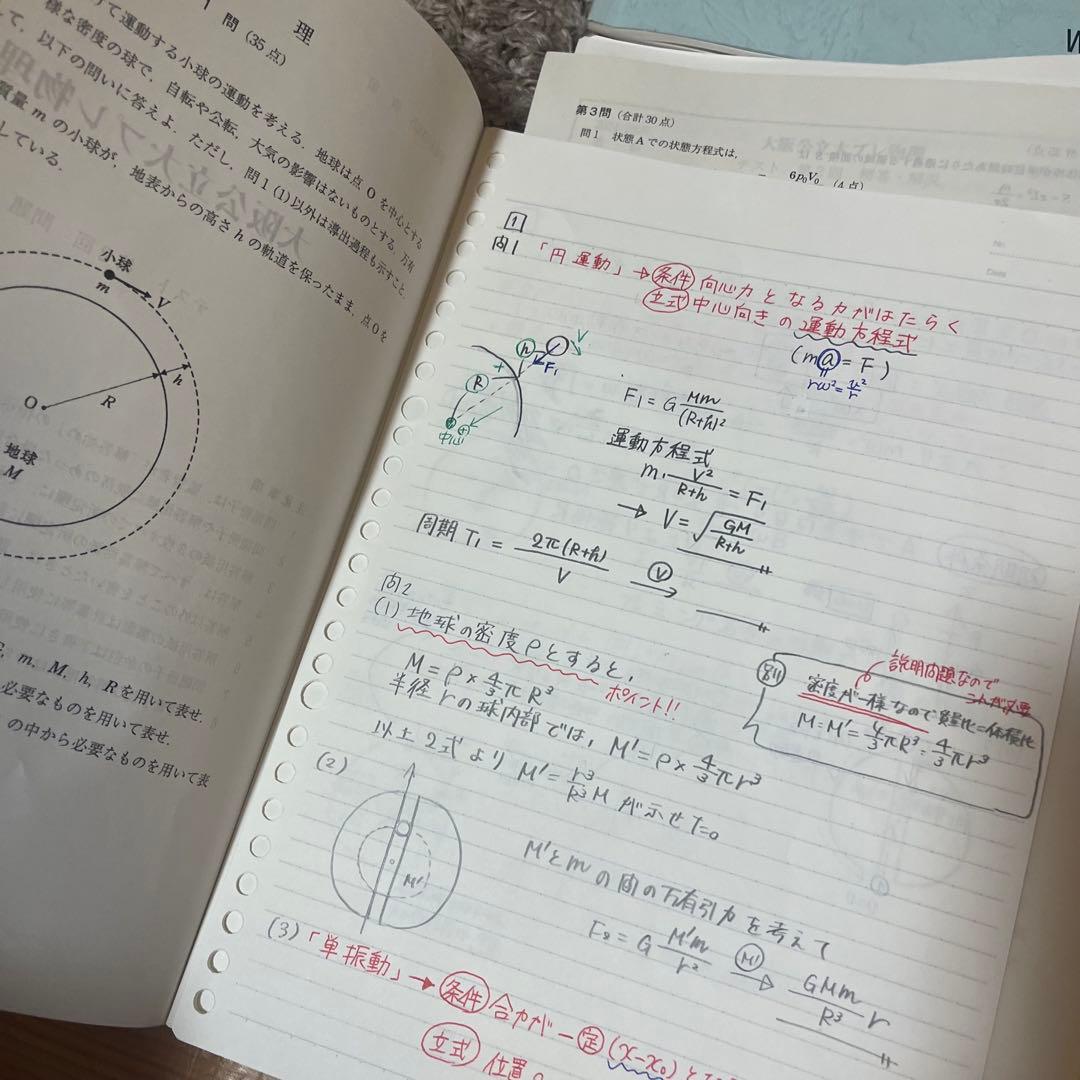 理
問 (35点)
けて運動する小球の運動を考える. 地球は点Oを中心とする
様な密度の球で, 自転や公転, 大気の影響はないものとする. 万有
て, 以下の問いに答えよ. ただし, 問1(1)以外は導出過程も示すこと.
質量 m の小球が, 地表からの高さ h の軌道を保ったまま, 点Oを
している.
小球
m
V
h
R
O
地球
M
m, M, h, R を用いて表せ.
必要なものを用いて表せ.
の中から必要なものを用いて表
第3問 (合計30点)
問1 状態Aでの状態方程式は,
6p₀V₀ (4点)
W
1
問1 「円運動」→ 条件 向心力となる力がはたらく
立式 中心向きの運動方程式
(ma = F)
rω² = v²/r
h
V
F₁
R
+
中心
F₁ = G Mm/(R+h)²
運動方程式
m・V²/(R+h) = F₁
→ V = √(GM/(R+h))
周期 T₁ = 2π(R+h)/V Ⓥ→
問2
(1) 地球の密度ρとすると,
M = ρ × 4/3 π R³ ポイント!!
半径 r の球内部では, M' = ρ × 4/3 π r³
以上2式より M' = r³/R³ M が示せた。
別 説明問題なので
これが必要
密度が一様なので質量比=体積比
M = M' = 4/3 πR³ = 4/3 πr³
(2)
M'
M'とmの間の万有引力を考えて
F₂ = G M'm/r² (M')→ GMm/R³ r
(3) 「単振動」→ 条件 合力が 一定(x-x₀)と
立式 位置